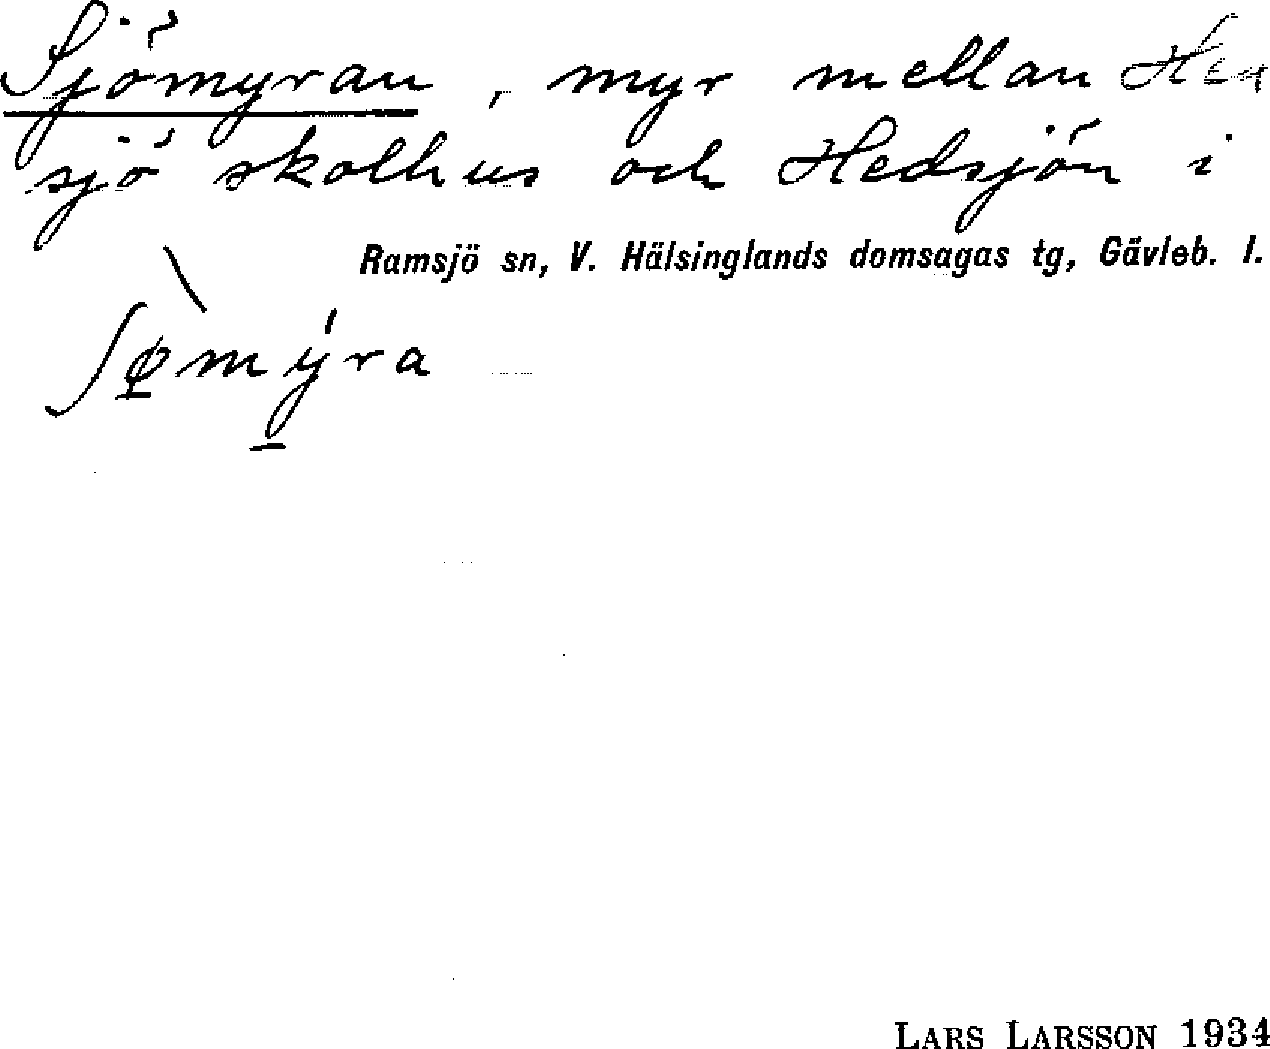 Sjömyran, myr mellan Hen
sjö skolhus och Hedsjön i
Ramsjö sn, V. Hälsinglands domsagas tg, Gävleb. l.
ʃø̠̀mý̠ra
LARS LARSSON 1934